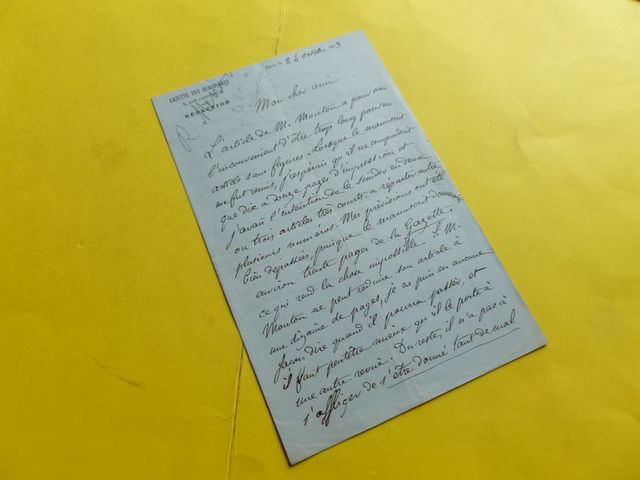 GAZETTE DES BEAUX-ARTS
RÉDACTION
24 octobre
Mon cher ami
L'article de M. Mouton a pour nous
l'inconvénient d'être trop long pour un
article sans figures. Lorsque le manuscrit
me fut remis, j'espérais qu'il ne comprendrait
que dix à douze pages d'impression et
j'avais l'intention de le scinder en deux
ou trois articles très courts à répartir entre
plusieurs numéros. Mes prévisions ont été
bien dépassées, puisque le manuscrit donnerait
environ trente pages de la Gazette,
ce qui rend la chose impossible. Si M.
Mouton ne peut réduire son article à
une dizaine de pages, je ne puis en aucune
façon dire quand il pourra passer, et
il faut peutêtre mieux qu'il le porte à
une autre revue. Du reste, il n'a pas à
s'affliger de s'être donné tant de mal